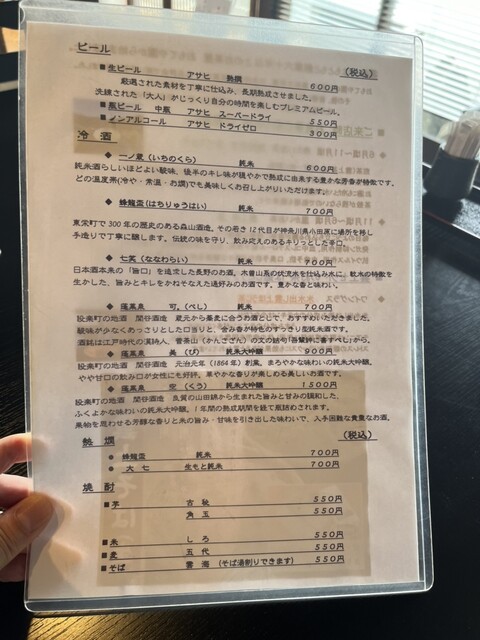 ビール (税込)
■生ビール アサヒ 熟撰 600円
厳選された素材を丁寧に仕込み、長期熟成させました。
洗練された「大人」がじっくり自分の時間を楽しむプレミアムビール。
■瓶ビール 中瓶 アサヒ スーパードライ 550円
■ノンアルコール アサヒ ドライゼロ 300円
冷 酒
◆ 一ノ蔵(いちのくら) 純米 600円
純米酒らしいほどよい酸味、後半のキレ味が穏やかで熟成に由来する豊かな芳香が特徴です。
どの温度帯(冷や・常温・お燗)でも美味しくお召し上がりいただけます。
◆ 蜂龍盃(はちりゅうはい) 純米 700円
東栄町で300年の歴史のある森山酒造。その若き12代目が神奈川県小田原に場所を移し
手造りで丁寧に醸します。伝統の味を守り、飲み応えのあるキリっとした辛口。
◆ 七笑(ななわらい) 純米 700円
日本酒本来の「旨口」を追求した長野のお酒。木曽山系の伏流水を仕込み水に、軟水の特徴を
生かした、旨みとキレをかねそなえた通好みのお酒です。豊かな香と味わい。
◆ 蓬莱泉 可。(べし) 純米 700円
設楽町の地酒 関谷酒造 蔵元から蕎麦に合うお酒として、おすすめいただきました。
酸味が少なくあっさりとした口当りと、含み香が特色のすっきり型純米酒です。
酒銘は江戸時代の漢詩人、菅茶山(かんさざん)の文の結句「吾輩評に書すべし」から。
◆ 蓬莱泉 美(び) 純米大吟醸 900円
設楽町の地酒 関谷酒造 元治元年(1864年)創業。まろやかな味わいの純米大吟醸。
やや甘口の飲み口が女性にも好評。華やかな香りが楽しめる美しいお酒です。
◆ 蓬莱泉 空(くう) 純米大吟醸 1500円
設楽町の地酒 関谷酒造 良質の山田錦から生まれた旨みと甘みの調和した、
ふくよかな味わいの純米大吟醸。1年間の熟成期間を経て瓶詰めされます。
果物を思わせる芳醇な香りと米の旨み・甘味を引き出した味わいで、入手困難な貴重なお酒。
熱 燗 (税込)
● 蜂龍盃 純米 700円
● 大 七 生もと純米 700円
焼 酎
■芋 古 秘 550円
角 玉 550円
■米 しろ 550円
■麦 五 代 550円
■そば 雲 海 (そば湯割りできます) 550円